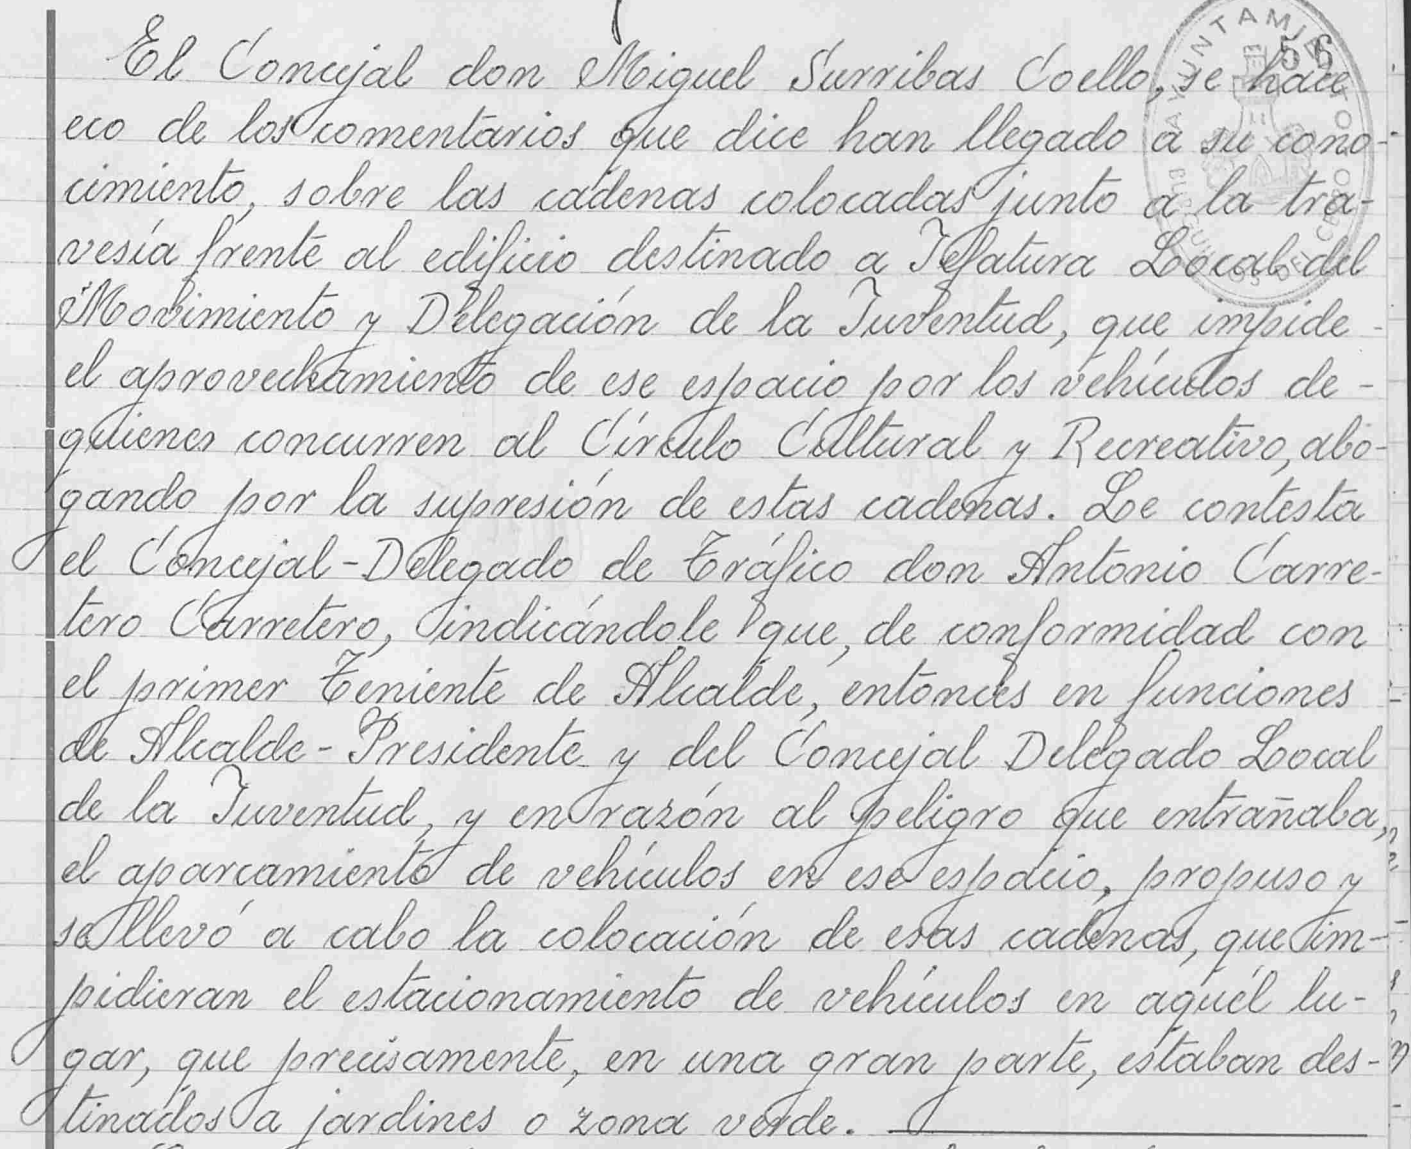 56
El Concejal don Miguel Surribas Coello, se hace
eco de los comentarios que dice han llegado a su cono-
cimiento, sobre las cadenas colocadas junto a la tra-
vesía frente al edificio destinado a Jefatura Local del
Movimiento y Delegación de la Juventud, que impide -
el aprovechamiento de ese espacio por los vehículos de -
quienes concurren al Círculo Cultural y Recreativo, abo-
gando por la supresión de estas cadenas. Le contesta
el Concejal-Delegado de Tráfico don Antonio Carre-
tero Carretero, indicándole que, de conformidad con
el primer Teniente de Alcalde, entonces en funciones
de Alcalde-Presidente y del Concejal Delegado Local
de la Juventud, y en razón al peligro que entrañaba,
el aparcamiento de vehículos en ese espacio, propuso y
se llevó a cabo la colocación de esas cadenas, que im-
pidieran el estacionamiento de vehículos en aquél lu-
gar, que precisamente, en una gran parte, estaban des-
tinados a jardines o zona verde.